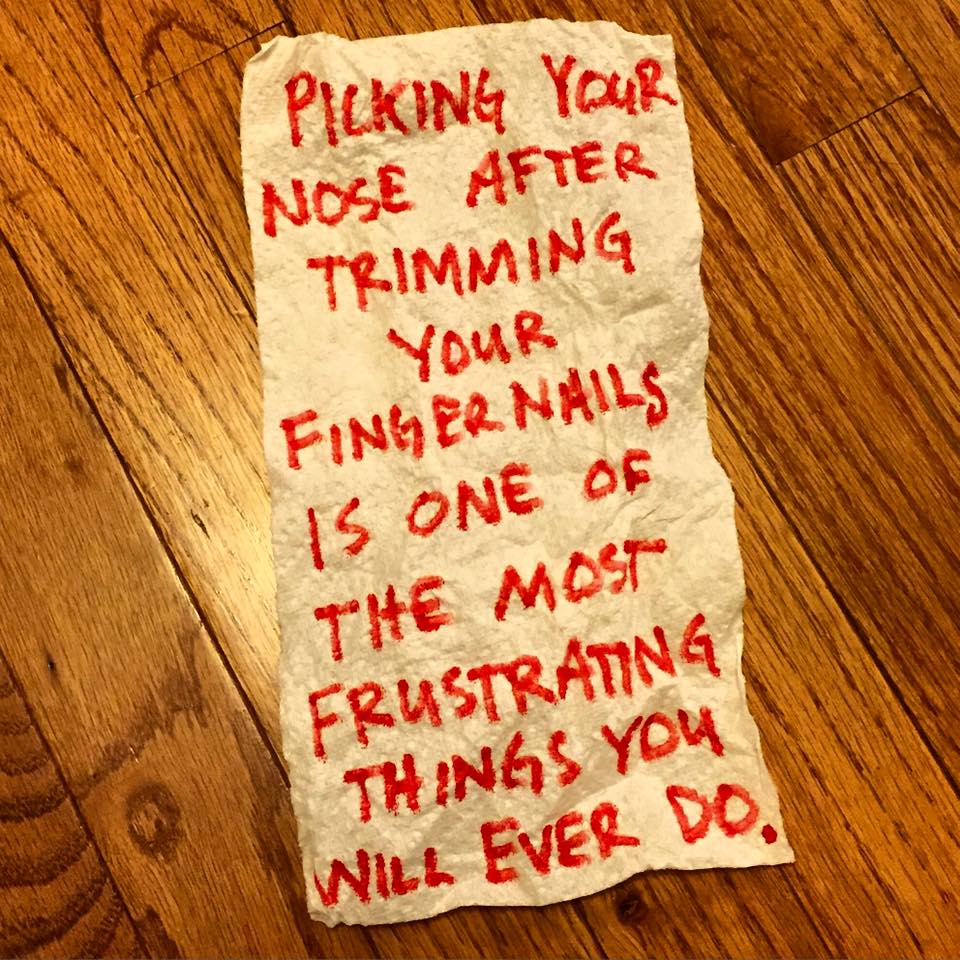 PICKING YOUR
NOSE AFTER
TRIMMING
YOUR
FINGERNAILS
IS ONE OF
THE MOST
FRUSTRATING
THINGS YOU
WILL EVER DO.